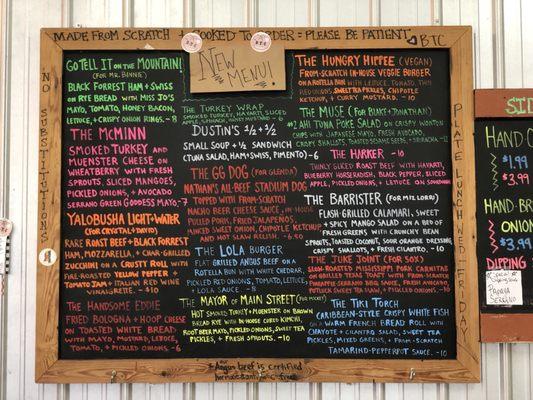 MADE FROM SCRATCH + COOKED TO ORDER = PLEASE BE PATIENT. BTC
NO SUBSTITUTIONS
PLATE LUNCH WED-FRIDAY
NEW MENU!
GO TELL IT ON THE MOUNTAIN!
(FOR MR. BINNIE)
BLACK FORREST HAM + SWISS
ON RYE BREAD WITH MISS JO'S
MAYO, TOMATO, HONEY BACON,
LETTUCE, + CRISPY ONION RINGS. -8
THE MCMINN
SMOKED TURKEY AND
MUENSTER CHEESE ON
WHEATBERRY WITH FRESH
SPROUTS, SLICED MANGOES,
PICKLED ONIONS, + AVOCADOS,
SERRANO GREEN GODDESS MAYO. -7
YALOBUSHA LIGHT + WATER
(FOR CRYSTAL + DAVID)
RARE ROAST BEEF + BLACK FORREST
HAM, MOZZARELLA, + CHAR-GRILLED
ZUCCHINI ON A CRUSTY ROLL WITH
FIRE-ROASTED YELLOW PEPPER +
TOMATO JAM + ITALIAN RED WINE
VINAIGRETTE. -8
THE HANDSOME EDDIE
FRIED BOLOGNA + HOOP CHEESE
ON TOASTED WHITE BREAD
WITH MUSTARD, LETTUCE,
TOMATO, + PICKLED ONIONS. -6
THE TURKEY WRAP
SMOKED TURKEY, HAVARTI, SLICED
DUSTIN'S 1/2 + 1/2
SMALL SOUP + 1/2 SANDWICH
(TUNA SALAD, HAM+SWISS, PIMENTO) -6
THE GG DOG (FOR GLENDA)
NATHAN'S ALL-BEEF STADIUM DOG
TOPPED WITH FROM-SCRATCH
NACHO BEER CHEESE SAUCE, IN-HOUSE
PULLED PORK, FRIED JALAPENOS,
MINCED SWEET ONION, CHIPOTLE KETCHUP
AND HOT SLAW RELISH. -6.50
THE LOLA BURGER
FLAT GRILLED ANGUS BEEF ON A
ROTELLA BUN WITH WHITE CHEDDAR,
PICKLED RED ONIONS, TOMATO, LETTUCE,
+ LOLA SAUCE -8
THE MAYOR OF MAIN STREET
HOT SMOKED TURKEY + MUENSTER ON BROWN
BREAD RYE WITH IN HOUSE CURED KIMCHI,
ROOT BEER MAYO, PICKLED ONIONS, SWEET TEA
PICKLES, + FRESH SPROUTS. -10
THE HUNGRY HIPPEE (VEGAN)
FROM-SCRATCH IN-HOUSE VEGGIE BURGER
ON A ROTELLA BUN WITH LETTUCE, TOMATO, THIN
RED ONIONS, SWEET TEA PICKLES, CHIPOTLE
KETCHUP, + CURRY MUSTARD. -10
THE MUSE (FOR BLAKE + JONATHAN)
#2 AHI TUNA POKE SALAD ON CRISPY WONTON
CHIPS WITH JAPANESE MAYO, FRESH AVOCADO,
CRISPY SHALLOTS, TOASTED SESAME SEEDS, + SRIRACHA. -12
THE HARKER -10
THINLY SLICED ROAST BEEF WITH HAVARTI,
BLUEBERRY HORSERADISH, BLACK PEPPER, SLICED
APPLE, PICKLED ONIONS, + LETTUCE ON SOURDOUGH
THE BARRISTER (FOR MIZ LORI)
FLASH-GRILLED CALAMARI, SWEET
+ SPICY MANGO SALAD ON A BED OF
FRESH GREENS WITH CRUNCHY BEAN
SPROUTS, TOASTED COCONUT, SOUR ORANGE DRESSING,
CRISPY SHALLOTS, + FRESH CILANTRO. -10
THE JUKE JOINT (FOR SOX)
SLOW-ROASTED MISSISSIPPI PORK CARNITAS
ON GRILLED TEXAS TOAST WITH FROM-SCRATCH
PINEAPPLE SERRANO BBQ SAUCE, FRESH AVOCADO,
PATUCK SWEET TEA HAM, + PICKLED ONIONS. -10
THE TIKI TORCH
CARIBBEAN-STYLE CRISPY WHITE FISH
ON A WARM FRENCH BREAD ROLL WITH
CHAYOTE + CILANTRO SALAD, SWEET TEA
PICKLES, MIXED GREENS, + FROM-SCRATCH
TAMARIND-PEPPERPOT SAUCE. -10
+ ANGUS beef is certified
hormone free
HAND
$1.99
$3.99
HAND-BR
ONION
$3.99
DIPPING
PAPAYA
SERRANO